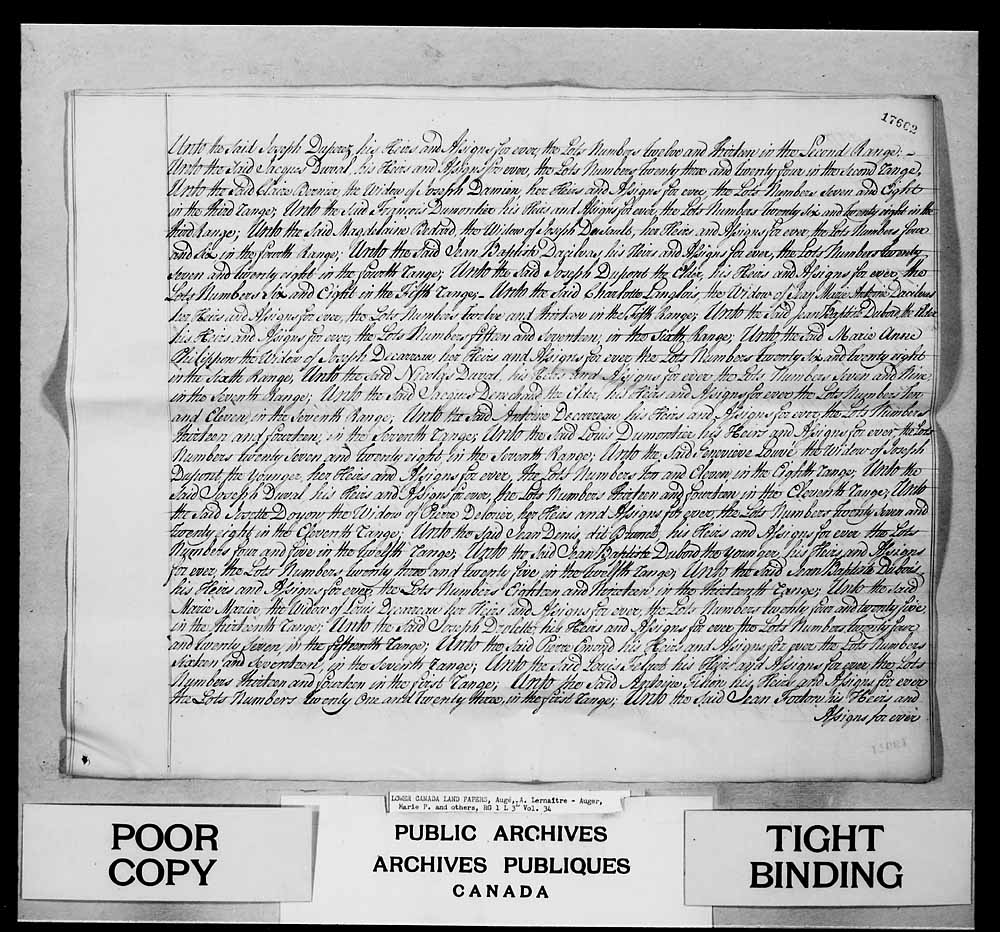 17662
Unto the Said Joseph Duperez, his Heirs and Assigns for ever, the Lots Numbers twelve and thirteen in the Second Range; –
Unto the Said Jacques Duval, his Heirs and Assigns for ever, the Lots Numbers twenty three and twenty four in the Second Range,
Unto the Said the Widow of Joseph Damien, her Heirs and Assigns for ever, the Lots Numbers Seven and Eight
in the third Range; Unto the Said François Dumontier his Heirs and Assigns for ever, the Lots Numbers twenty Six and twenty eight in the
third Range; Unto the Said Magdelaine the Widow of Joseph her Heirs and Assigns for ever, the Lots Numbers
and Six in the fourth Range; Unto the Said Jean Baptiste his Heirs and Assigns for ever, the Lots Numbers twenty
Seven and twenty eight in the fourth Range; Unto the Said Joseph Dupont the Elder, his Heirs and Assigns for ever, the
Lots Numbers Six and Eight in the Fifth Range; – Unto the Said Charlotte Langlois, the Widow of Jean Marie Antoine
her Heirs and Assigns for ever, the Lots Numbers twelve and thirteen in the Fifth Range; Unto the Said Jean Baptiste Dubord, the Elder
his Heirs and Assigns for ever, the Lots Numbers Fifteen and Seventeen, in the Sixth Range; Unto the Said Marie Anne
Philippon the Widow of Joseph Decarreau her Heirs and Assigns for ever the Lots Numbers twenty Six and twenty eight
in the Sixth Range; Unto the Said Nicolas Duval, his Heirs and Assigns for ever the Lots Numbers Seven and Nine,
in the Seventh Range; Unto the Said Jacques the Elder, his Heirs and Assigns for ever the Lots Numbers Ten
and Eleven, in the Seventh Range; Unto the Said Antoine Decarreau his Heirs and Assigns for ever, the Lots Numbers
thirteen and fourteen, in the Seventh Range; Unto the Said Louis Dumontier his Heirs and Assigns for ever the Lots
Numbers twenty Seven and twenty eight, in the Seventh Range; Unto the Said Genevieve the Widow of Joseph
Dupont the younger, her Heirs and Assigns for ever, the Lots Numbers ten and Eleven, in the Eighth Range; Unto the
Said Joseph Duval his Heirs and Assigns for ever, the Lots Numbers thirteen and fourteen in the Eleventh Range; Unto
the Said Doyon the Widow of Pierre her Heirs and Assigns for ever, the Lots Numbers twenty Seven and
twenty eight in the Eleventh Range; Unto the Said Jean Denis, dit his Heirs and Assigns for ever the Lots
Numbers four and five in the twelfth Range; Unto the Said Jean Baptiste Dubord the younger, his Heirs and Assigns
for ever, the Lots Numbers twenty three and twenty five in the twelfth Range; Unto the Said Jean Baptiste Dubois,
his Heirs and Assigns for ever, the Lots Numbers Eighteen and Nineteen in the thirteenth Range; Unto the Said
Marie Mazier, the Widow of Louis Decarreau her Heirs and Assigns for ever, the Lots Numbers twenty four and twenty five
in the thirteenth Range; Unto the Said Joseph Drolette his Heirs and Assigns for ever the Lots Numbers twenty four
and twenty Seven, in the fifteenth Range; Unto the Said Pierre his Heirs and Assigns for ever the Lots Numbers
Sixteen and Seventeen, in the Seventh Range; Unto the Said Louis his Heirs and Assigns for ever the Lots
Numbers thirteen and fourteen in the first Range; Unto the Said his Heirs and Assigns for ever
the Lots Numbers twenty One and twenty three, in the first Range; Unto the Said Jean his Heirs and
Assigns for ever
LOWER CANADA LAND PAPERS, Augé, A. Lemaître - Auger,
Marie P. and others, RG 1 L 3" Vol. 34
POOR
COPY
PUBLIC ARCHIVES
ARCHIVES PUBLIQUES
CANADA
TIGHT
BINDING